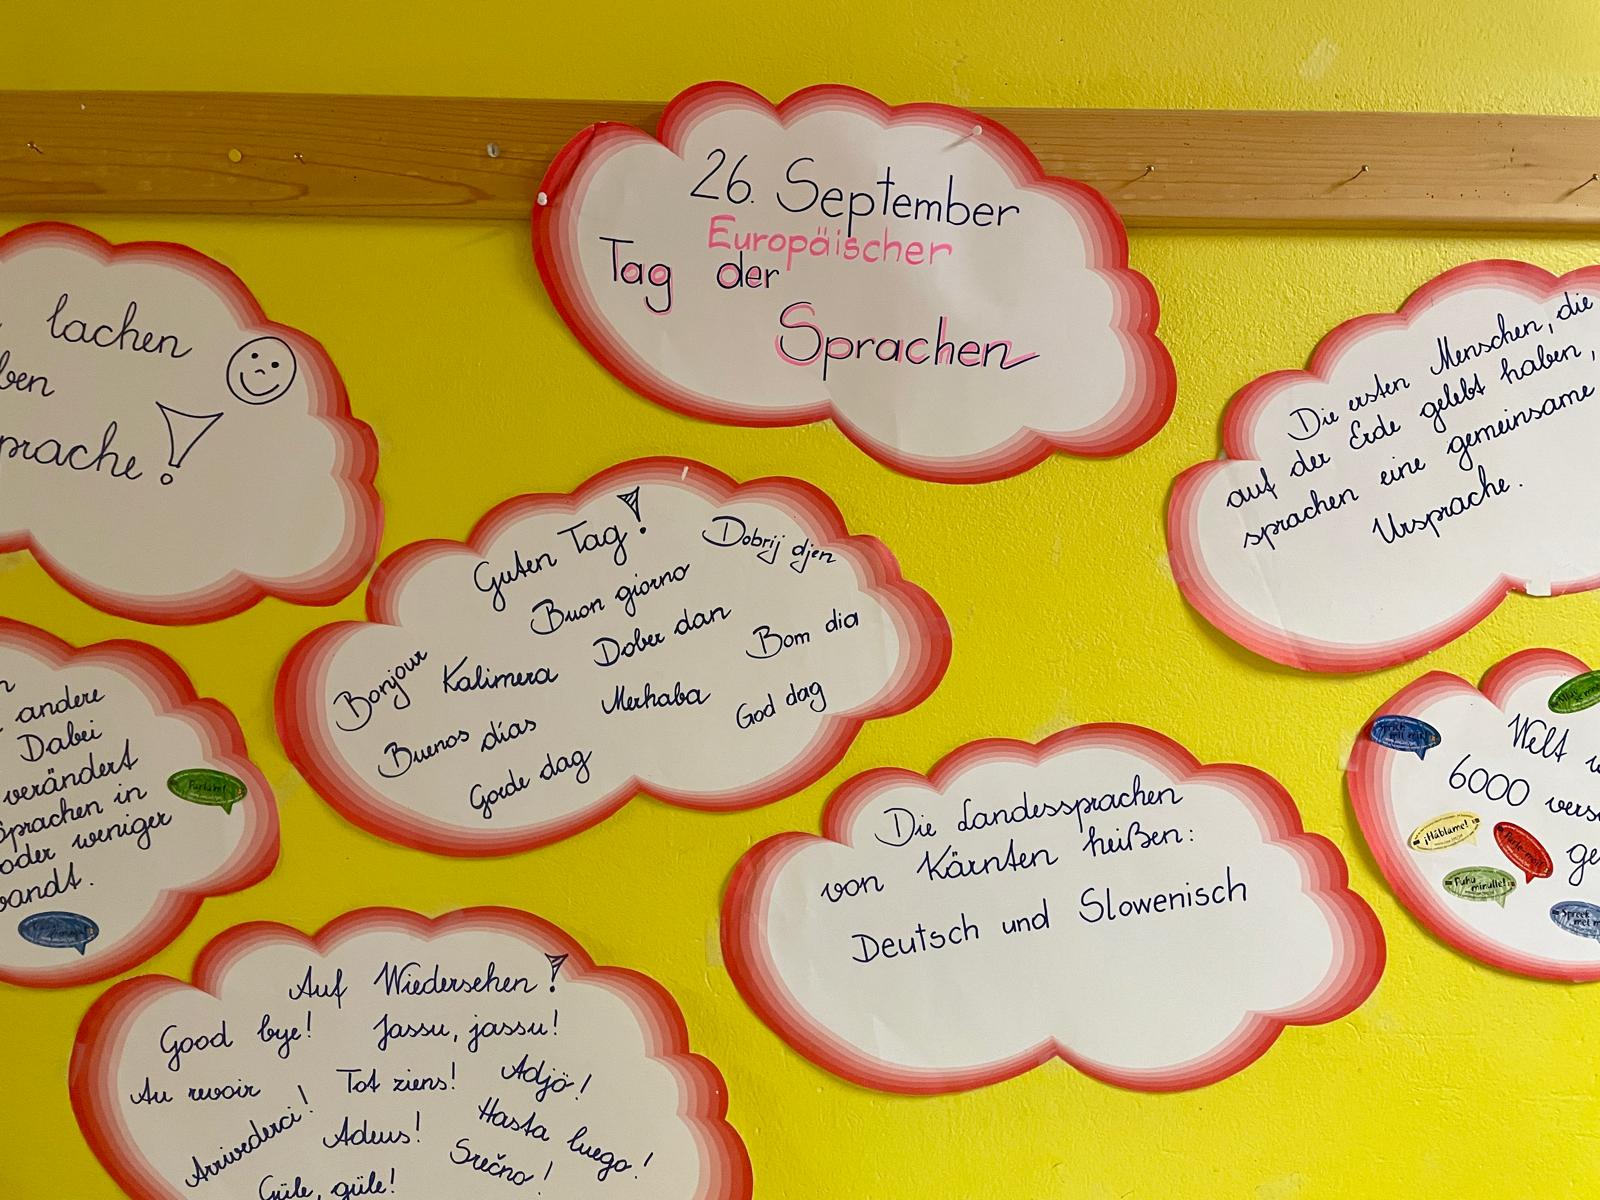 26. September
Europäischer
Tag der
Sprachen
lachen
ben
prache!
Die ersten Menschen, die
auf der Erde gelebt haben,
sprachen eine gemeinsame
Ursprache.
Guten Tag!
Dobrij djen
Buon giorno
Dober dan
Bom dia
Bonjour
Kalimera
Merhaba
God dag
Buenos días
Gorde dag
andere
Dabei
verändert
Sprachen in
oder weniger
wandt.
Die Landessprachen
von Kärnten heißen:
Deutsch und Slowenisch
Welt
6000 vers
ge
Sprich
mit mir!
¡Háblame!
Parle-moi!
Puhu
minulle!
Spreek
met m
Auf Wiedersehen!
Good bye! Jassu, jassu!
Au revoir Tot ziens! Adjö!
Arrivederci! Adeus! Hasta luego!
Srečno!
Güle, güle!